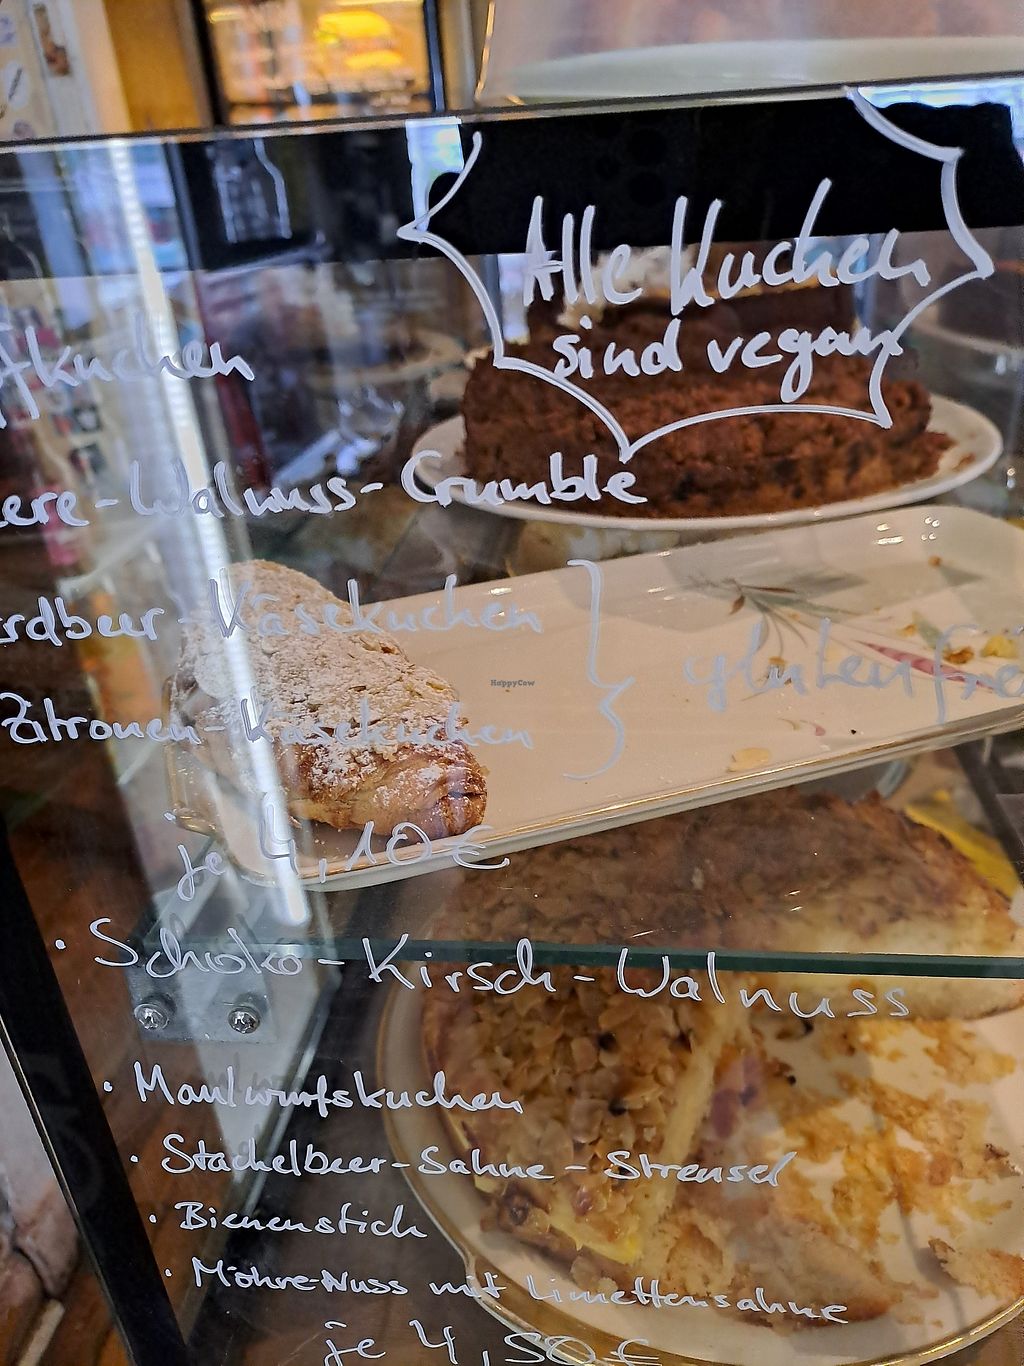 Alle Kuchen
sind vegan
fkuchen
ere-Walnuss-Crumble
rdbeer-Käsekuchen
Zitronen-Käsekuchen
glutenfre
je 4,10€
· Schoko-Kirsch-Walnuss
· Maulwurfskuchen
· Stachelbeer-Sahne-Streusel
· Bienenstich
· Möhre-Nuss mit Limettensahne
je 4,50€
HappyCow